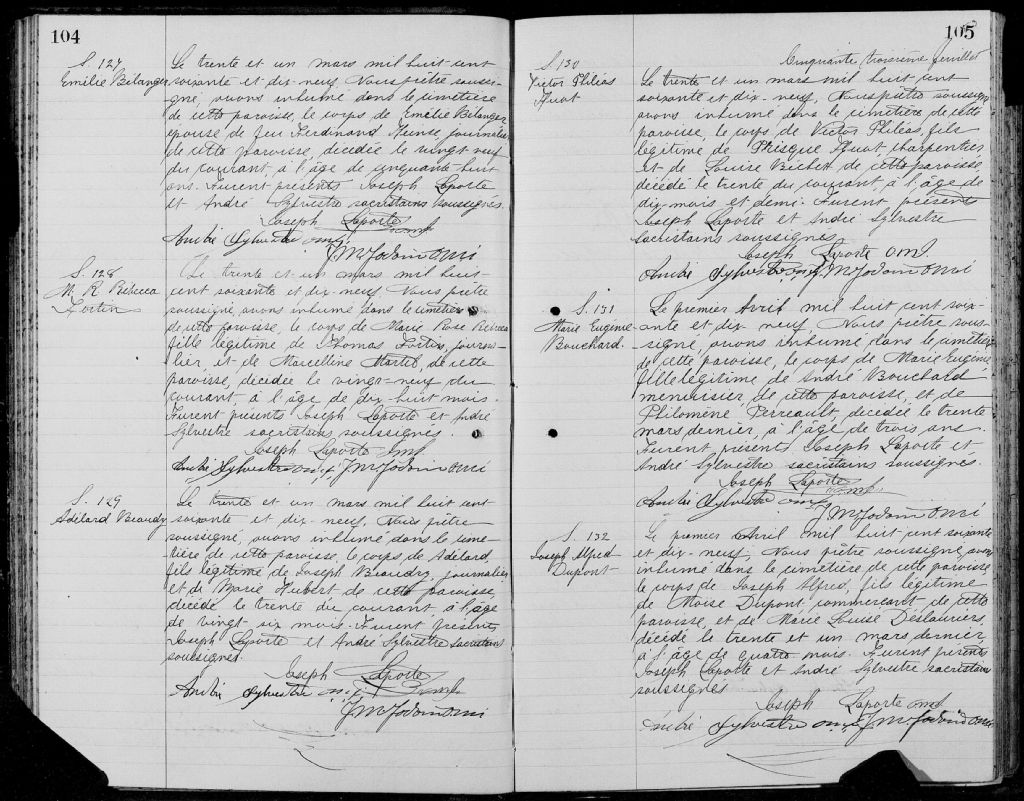 104
S. 127
Emélie Bélanger
Le trente et un mars mil huit cent
soixante et dix-neuf, Nous prêtre soussi-
gné, avons inhumé dans le cimetière
de cette paroisse, le corps de Emélie Bélanger
épouse de feu Ferdinand journalier
de cette paroisse, décédée le vingt neuf
du courant, à l'âge de cinquante huit
ans. Furent présents Joseph Laporte
et André Sylvestre sacristains soussignés.
Joseph Laporte
André Sylvestre
J. M. Jodoin O M I
S. 128
M. R. Rébecca
Fortin
Le trente et un mars mil huit-
cent soixante et dix-neuf, Nous prêtre
soussigné, avons inhumé dans le cimetière
de cette paroisse, le corps de Marie Rose Rébecca
fille légitime de Thomas Fortin, journa-
lier, et de Marcelline Martel, de cette
paroisse, décédée le vingt-neuf du
courant, à l'âge de dix-huit mois.
Furent présents Joseph Laporte et André
Sylvestre sacristains soussignés.
Joseph Laporte
André Sylvestre J M Jodoin O M I
S. 129
Adélard Beaudry
Le trente et un mars mil huit cent
soixante et dix-neuf, Nous prêtre
soussigné, avons inhumé dans le cime-
tière de cette paroisse, le corps de Adélard,
fils légitime de Joseph Beaudry, journalier
et de Marie Hubert de cette paroisse,
décédé le trente du courant à l'âge
de vingt six mois. Furent présents
Joseph Laporte et André Sylvestre sacristains
soussignés.
Joseph Laporte
André Sylvestre
J M Jodoin O M I
105
Cinquante troisième feuillet
S. 130
Victor Philéas
Huot
Le trente et un mars mil huit cent
soixante et dix-neuf, Nous prêtre soussigné
avons inhumé dans le cimetière de cette
paroisse, le corps de Victor Philéas, fils
légitime de Prisque Huot charpentier
et de Louise de cette paroisse,
décédé le trente du courant, à l'âge de
dix mois et demi. Furent présents
Joseph Laporte et André Sylvestre
sacristains soussignés.
Joseph Laporte
André Sylvestre J M Jodoin O M I
S. 131
Marie Eugénie
Bouchard.
Le premier Avril mil huit cent soix-
ante et dix neuf, Nous prêtre sous-
signé, avons inhumé dans le cimetière
de cette paroisse, le corps de Marie Eugénie,
fille légitime de André Bouchard
menuisier de cette paroisse, et de
Philomène Perreault, décédée le trente
mars dernier, à l'âge de trois ans.
Furent présents Joseph Laporte et
André Sylvestre sacristains soussignés.
Joseph Laporte
André Sylvestre
J M Jodoin O M I
S. 132
Joseph Alfred
Dupont
Le premier Avril mil huit cent soixante
et dix-neuf, Nous prêtre soussigné, avons
inhumé dans le cimetière de cette paroisse
le corps de Joseph Alfred, fils légitime
de Moise Dupont, commercant de cette
paroisse, et de Marie Louise Deslauriers,
décédé le trente et un mars dernier,
à l'âge de quatre mois. Furent présents
Joseph Laporte et André Sylvestre sacristains
soussignés
Joseph Laporte
André Sylvestre J M Jodoin O M I